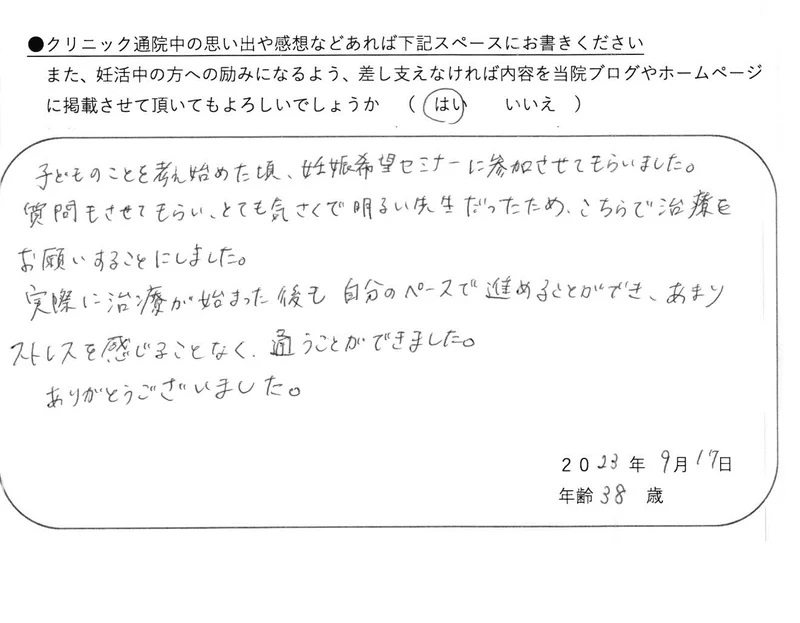 ●クリニック通院中の思い出や感想などあれば下記スペースにお書きください
また、妊活中の方への励みになるよう、差し支えなければ内容を当院ブログやホームページ
に掲載させて頂いてもよろしいでしょうか （ はい いいえ ）
子どものことを考え始めた頃、妊娠希望セミナーに参加させてもらいました。
質問もさせてもらい、とても気さくで明るい先生だったため、こちらで治療を
お願いすることにしました。
実際に治療が始まった後も 自分のペースで進めることができ、あまり
ストレスを感じることなく、通うことができました。
ありがとうございました。
2023年 9月17日
年齢 38 歳